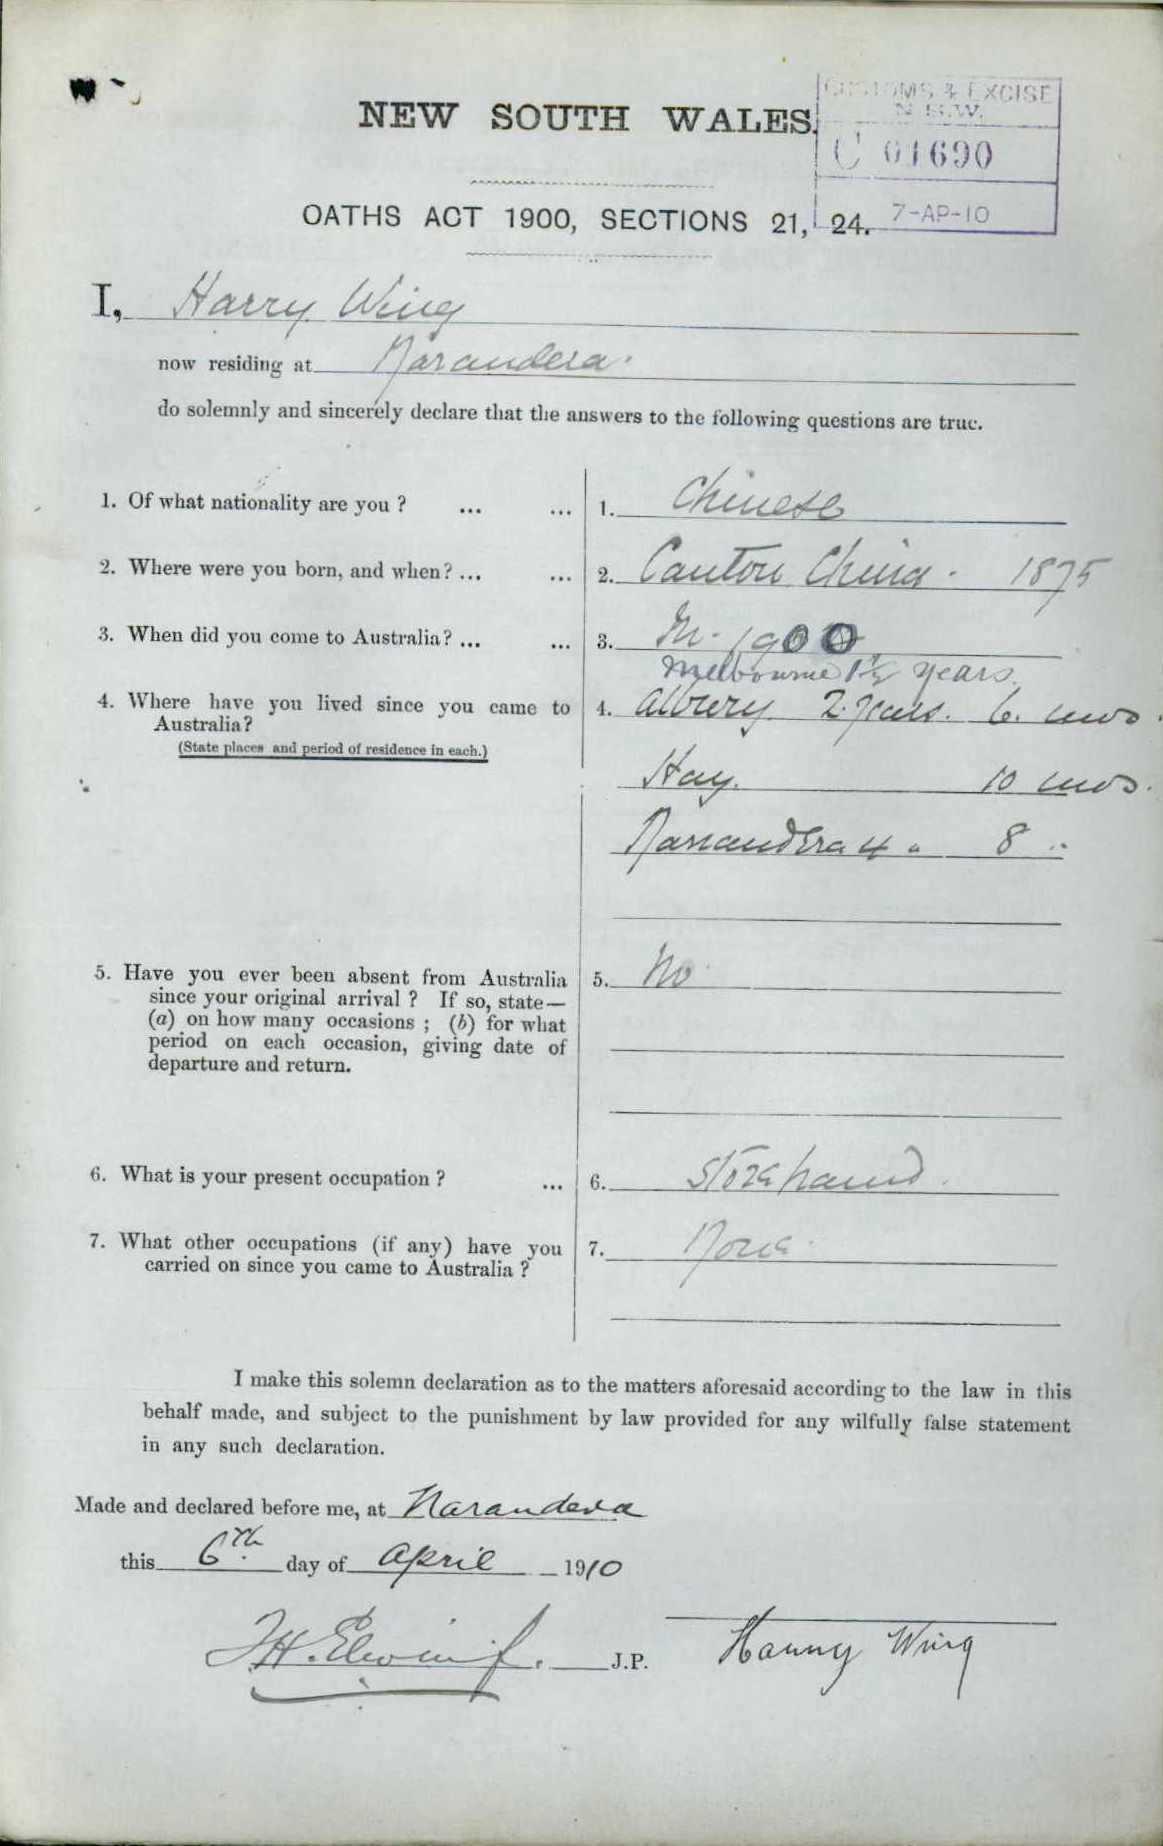 CUSTOMS & EXCISE
N.S.W.
C 01690
7-AP-10
NEW SOUTH WALES.
OATHS ACT 1900, SECTIONS 21, 24.
I, Harry Wing
now residing at Narandera.
do solemnly and sincerely declare that the answers to the following questions are true.
1. Of what nationality are you ? ... ... 1. Chinese
2. Where were you born, and when? ... ... 2. Canton China. 1875
3. When did you come to Australia? ... ... 3. In. 1900
Melbourne 1½ years.
4. Where have you lived since you came to 4. Albury 2. years. 6. mos.
Australia?
(State places and period of residence in each.)
Hay. 10 mos.
Narrandera 4 " 8 "
5. Have you ever been absent from Australia 5. No
since your original arrival ? If so, state—
(a) on how many occasions ; (b) for what
period on each occasion, giving date of
departure and return.
6. What is your present occupation ? ... 6. Storehand.
7. What other occupations (if any) have you 7. None.
carried on since you came to Australia ?
I make this solemn declaration as to the matters aforesaid according to the law in this
behalf made, and subject to the punishment by law provided for any wilfully false statement
in any such declaration.
Made and declared before me, at Narandera
this 6th. day of April 1910
J.P. Harry Wing